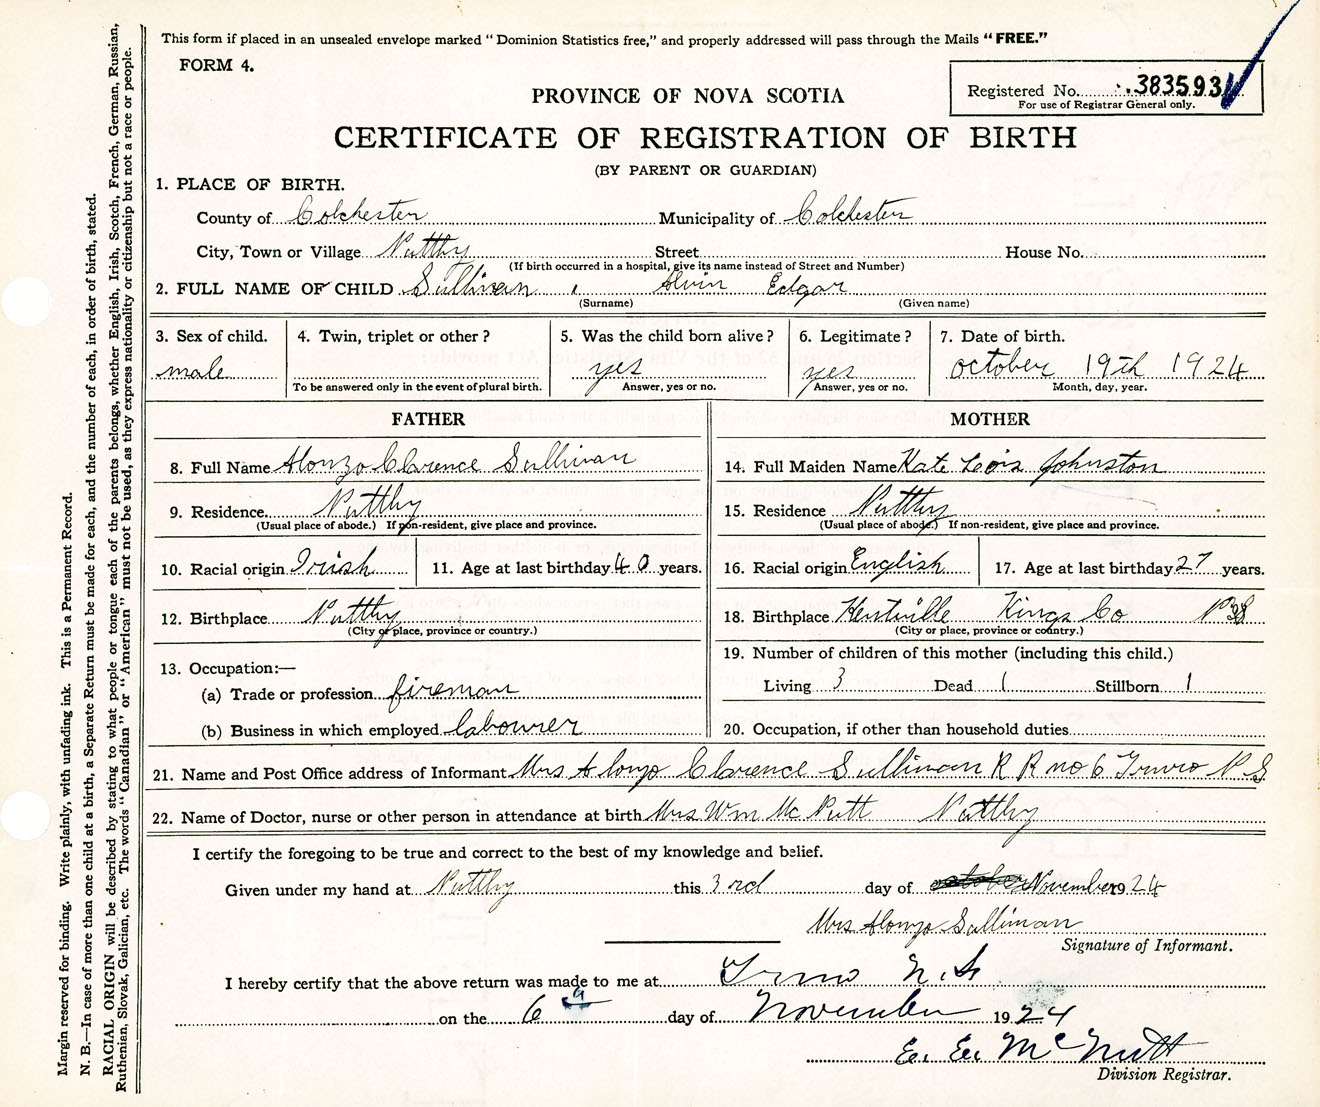 This form if placed in an unsealed envelope marked "Dominion Statistics free," and properly addressed will pass through the Mails "FREE."
FORM 4.
Registered No. 383593
For use of Registrar General only.
PROVINCE OF NOVA SCOTIA
CERTIFICATE OF REGISTRATION OF BIRTH
(BY PARENT OR GUARDIAN)
1. PLACE OF BIRTH.
County of Colchester Municipality of Colchester
City, Town or Village Nuttby Street House No.
(If birth occurred in a hospital, give its name instead of Street and Number)
2. FULL NAME OF CHILD Sullivan, Alvin Edgar
(Surname) (Given name)
3. Sex of child. 4. Twin, triplet or other? 5. Was the child born alive? 6. Legitimate? 7. Date of birth.
male yes yes october 19th 1924
To be answered only in the event of plural birth. Answer, yes or no. Answer, yes or no. Month, day, year.
FATHER
8. Full Name Alonzo Clarence Sullivan
9. Residence Nuttby
(Usual place of abode.) If non-resident, give place and province.
10. Racial origin Irish 11. Age at last birthday 40 years.
12. Birthplace Nuttby
(City or place, province or country.)
13. Occupation:—
(a) Trade or profession fireman
(b) Business in which employed labourer
MOTHER
14. Full Maiden Name Kate Lois Johnston
15. Residence Nuttby
(Usual place of abode.) If non-resident, give place and province.
16. Racial origin English 17. Age at last birthday 27 years.
18. Birthplace Kentville Kings Co N S
(City or place, province or country.)
19. Number of children of this mother (including this child.)
Living 3 Dead 1 Stillborn 1
20. Occupation, if other than household duties
21. Name and Post Office address of Informant Mrs Alonzo Clarence Sullivan R R no 6 Truro N S
22. Name of Doctor, nurse or other person in attendance at birth Mrs Wm Mc Nutt Nuttby
I certify the foregoing to be true and correct to the best of my knowledge and belief.
Given under my hand at Nuttby this 3rd day of october November 1924
Mrs Alonzo Sullivan
Signature of Informant.
I hereby certify that the above return was made to me at Truro N.S
on the 6th day of November 1924
E. E. McNutt
Division Registrar.
Margin reserved for binding. Write plainly, with unfading ink. This is a Permanent Record.
N. B.—In case of more than one child at a birth, a Separate Return must be made for each, and the number of each, in order of birth, stated.
RACIAL ORIGIN will be described by stating to what people or tongue each of the parents belongs, whether English, Irish, Scotch, French, German, Russian,
Ruthenian, Slovak, Galician, etc. The words "Canadian" or "American" must not be used, as they express nationality or citizenship but not a race or people.